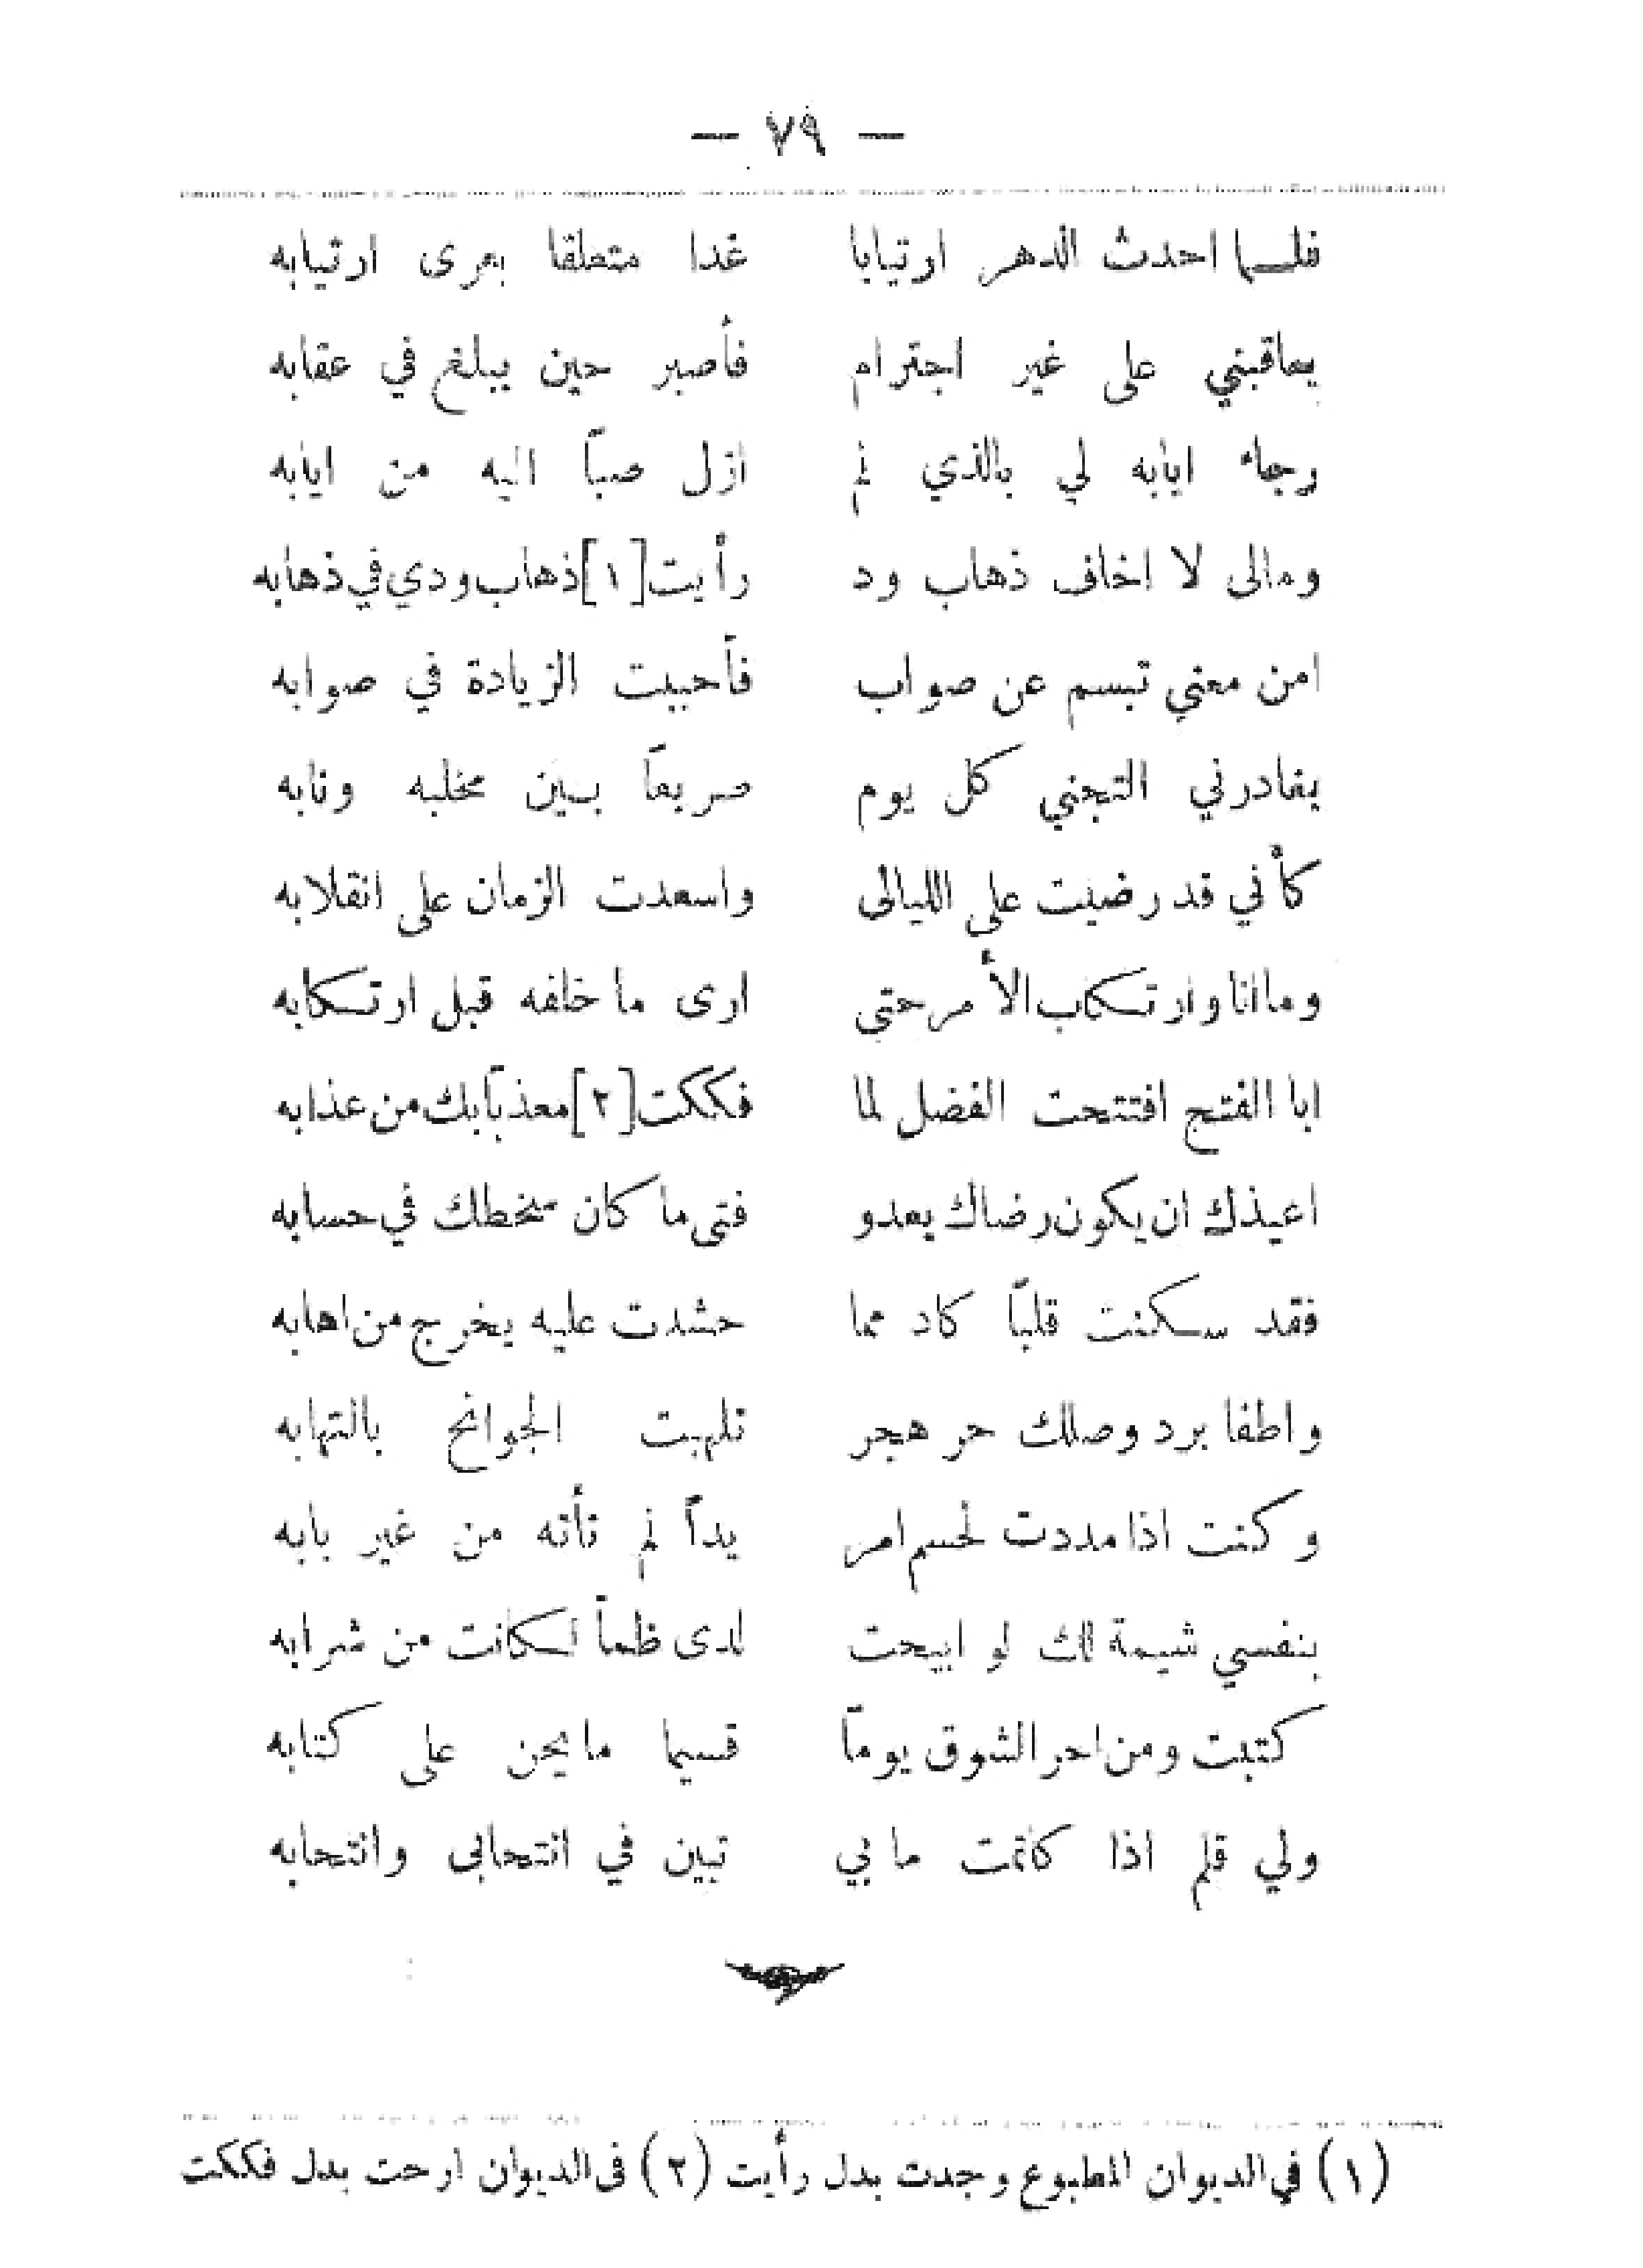 — ٧٩ —
فلما احدث الدهر ارتيابا غدا متعلقا بعرى ارتيابه
يعاقبني على غير اجترام فأصبر حين يبلغ في عقابه
رجاء ايابه لي بالذي لم ازل صباً اليه من ايابه
ومالى لا اخاف ذهاب ود رأيت[١]ذهاب ودي في ذهابه
امن معنى تبسم عن صواب فأحببت الزيادة في صوابه
يغادرني التجني كل يوم صريعاً بين مخلبه ونابه
كأني قد رضيت على الليالى واسعدت الزمان على انقلابه
وما انا وارتكاب الأمر حتى ارى ما خلفه قبل ارتكابه
ابا الفتح افتتحت الفضل لما فككت[٢]معذباً بك من عذابه
اعيذك ان يكون رضاك يعدو فتى ما كان سخطك في حسابه
فقد سكنت قلباً كاد مما حشدت عليه يخرج من اهابه
واطفا برد وصلك حر هجر تلهبت الجوانح بالتهابه
وكنت اذا مددت لحسم امر يداً لم تأته من غير بابه
بنفسي شيمة لك لو ابيحت لدى ظمأ لكانت من شرابه
كتبت ومن احر الشوق يوماً قسيما ما يحن على كتابه
ولي قلم اذا كاتمت ما بي تبين في انتحابى وانتحابه
(١) في الديوان المطبوع وجدت بدل رأيت (٢) فى الديوان ارحت بدل فككت